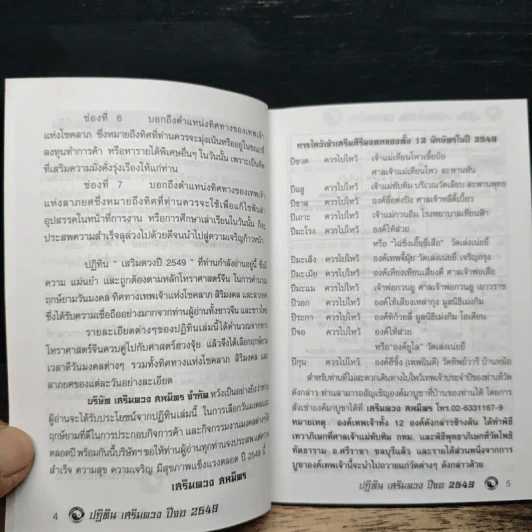 ช่องที่ 6 บอกถึงตำแหน่งทิศทางของเทพเจ้า
แห่งโชคลาภ ซึ่งหมายถึงทิศที่ท่านควรจะมุ่งเน้นหรืออยู่ในขณะ
ลงทุนทำการค้า หรือหารายได้พิเศษอื่นๆ ในวันนั้น เพราะเป็นทิศ
ที่เสริมความมั่งคั่งรุ่งเรืองให้แก่ท่าน
ช่องที่ 7 บอกถึงตำแหน่งทิศทางของเทพเจ้า
แห่งลาภยศซึ่งหมายถึงทิศที่ท่านควรจะใช้เพื่อแก้ไขฟันฝ่า
อุปสรรคในหน้าที่การงาน หรือการศึกษาเล่าเรียนในวันนั้น ก็จะ
ประสพความสำเร็จลุล่วงไปด้วยดีจนนำไปสู่ความเจริญก้าวหน้า
ปฏิทิน " เสริมดวงปี 2549 " ที่ท่านกำลังอ่านอยู่นี้ ซึ่งมี
ความ แม่นยำ และถูกต้องตามหลักโหราศาสตร์จีน ในการคำนวณ
ฤกษ์ยามวันมงคล ทิศทางเทพเจ้าแห่งโชคลาภ สิริมงคล และลาภยศ
ซึ่งได้รับความเชื่อถืออย่างมากจากท่านผู้อ่านทั้งชาวจีน และชาวไทย
รายละเอียดต่างๆของปฏิทินเล่มนี้ได้คำนวณจากทาง
โหราศาสตร์จีนควบคู่ไปกับศาสตร์ฮวงจุ้ย แล้วจึงได้เลือกฤกษ์ยาม
เวลาดีวันมงคลต่างๆ รวมทั้งทิศทางเทพเจ้าแห่งโชคลาภ สิริมงคล และ
ลาภยศของแต่ละวันอย่างละเอียด
บริษัท เสริมดวง สหมิตร จำกัด หวังเป็นอย่างยิ่งว่าท่าน
ผู้อ่านจะได้รับประโยชน์จากปฏิทินเล่มนี้ ในการเลือกวันมงคลและ
ฤกษ์ยามที่ดีในการประกอบกิจการค้า และกิจกรรมงานมงคลต่างๆ
ตลอดปี พร้อมกันนี้บริษัทฯ ขอให้ท่านผู้อ่านทุกท่านจงประสบแต่ความ
สำเร็จ ความสุข ความเจริญ มีสุขภาพแข็งแรงตลอด ปี 2549 นี้
เสริมดวง สหมิตร
4 ปฏิทิน เสริมดวง ปีจอ 2549
การไหว้เจ้าเสริมสิริมงคลของทั้ง 12 นักษัตรในปี 2549
ปีชวด ควรไปไหว้ เจ้าแม่เทียนโหวเซี้ยบ้อ
ศาลเจ้าแม่เทียนโหว สะพานหัน
ปีฉลู ควรไปไหว้ เจ้าแม่ทับทิม บริเวณวัดเลียบ สะพานพุทธ
ปีขาล ควรไปไหว้ องค์ฮื่อตั่งปึง ศาลเจ้าหลีตี้เบี้ยว
ปีเถาะ ควรไปไหว้ เจ้าแม่กวนอิม โรงพยาบาลเทียนฟ้า
ปีมะโรง ควรไปไหว้ องค์ไท้ส่วย
หรือ "ไฉ่ซิ่งเอี๊ยชื่อเสีย" วัดเล่งเน่ยยี่
ปีมะเส็ง ควรไปไหว้ องค์เทพจี้มุ้ย วัดเล่งเน่ยยี่ เจริญกรุง
ปีมะเมีย ควรไปไหว้ องค์เฮี่ยงเทียนเสี่ยงตี่ ศาลเจ้าพ่อเสือ
ปีมะแม ควรไปไหว้ เจ้าพ่อกวนอู ศาลเจ้าพ่อกวนอู เยาวราช
ปีวอก ควรไปไหว้ องค์ไต้เสี่ยหล่ากุง มูลนิธิเม่งกิม
ปีระกา ควรไปไหว้ องค์ทีก้วยลี้ มูลนิธิเม่งกิม โอเดียน
ปีจอ ควรไปไหว้ องค์ไท้ส่วย
หรือ "องค์ยูไล" วัดเล่งเน่ยยี่
ปีกุน ควรไปไหว้ องค์ฮี่ซิ้ง (เทพยินดี) วัดทิพย์วารี บ้านหม้อ
สำหรับท่านที่ไม่สะดวกเดินทางไปไหว้เทพเจ้าประจำปีของท่านที่วัด
ดังกล่าว ท่านสามารถอัญเชิญองค์มาบูชาที่บ้านของท่านได้ โดยการ
สั่งเช่าองค์มาบูชาได้ที่ เสริมดวง สหมิตร โทร.02-6331167-9
หมายเหตุ องค์เทพเจ้าทั้ง 12 องค์ดังกล่าวข้างต้น ได้ทำพิธี
เทวาภิเษกที่ศาลเจ้าแม่ทับทิม กทม. และพิธีพุทธาภิเษกที่วัดโพธิ
ทัตธาราม อ.ศรีราชา ชลบุรีแล้ว และรายได้ส่วนหนึ่งจากการ
บูชาองค์เทพเจ้านี้จะนำไปถวายแก่วัดต่างๆ ดังกล่าวด้วย
ปฏิทิน เสริมดวง ปีจอ 2549 5